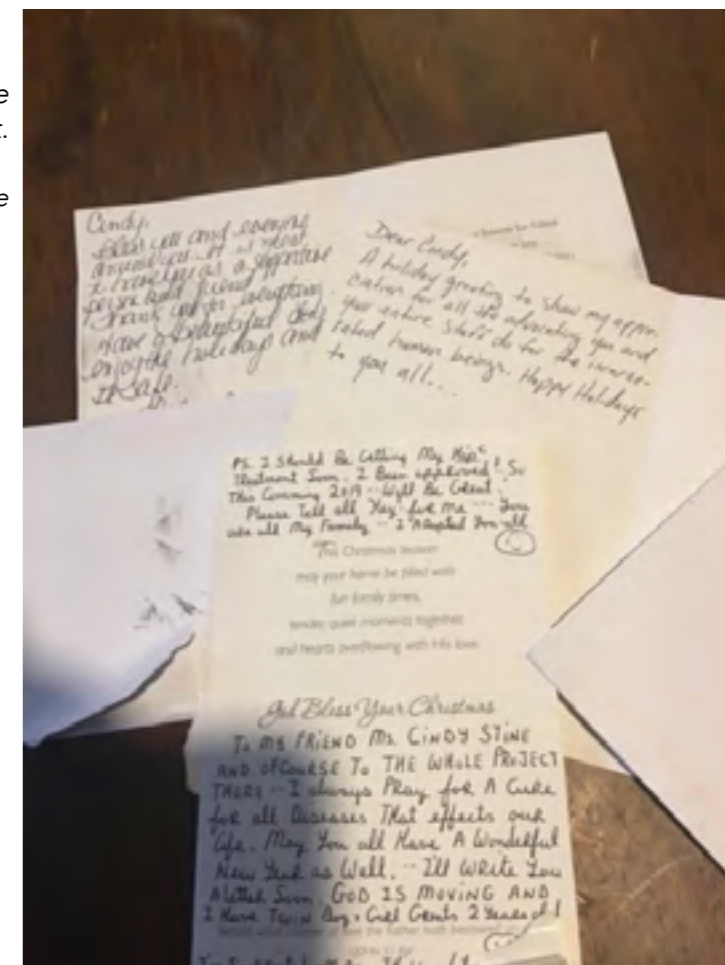 e
t.
e
Cindy,
Bless you and everyone
around you. It is great
to have you as a supportive
person and friend.
Thank you for everything.
Have a beautiful and
enjoy the holidays and
Safe.
Dear Cindy,
A holiday greeting to show my appre-
ciation for all the advocating you and
your entire staff do for the incarce-
rated human beings. Happy Holidays
to you all...
PS. I Should Be Getting My Hep C
Treatment Soon. I Been approved! So
This Coming 2019 -- Will Be Great.
Please Tell all Yay for me --- You
are all My Family -- I Adopted You all
This Christmas season
may your home be filled with
fun family times,
tender quiet moments together,
and hearts overflowing with His love.
God Bless Your Christmas
To MY FRIEND Ms. CINDY STINE
AND OFCOURSE To THE WHOLE PROJECT
THERE -- I always Pray for A Cure
for all Diseases That effects our
life. May You all Have A Wonderful
New Year as Well. -- I'll Write You
A letter Soon. GOD IS MOVING AND
I Have TWIN Boy + Girl Grands 2 Years old!